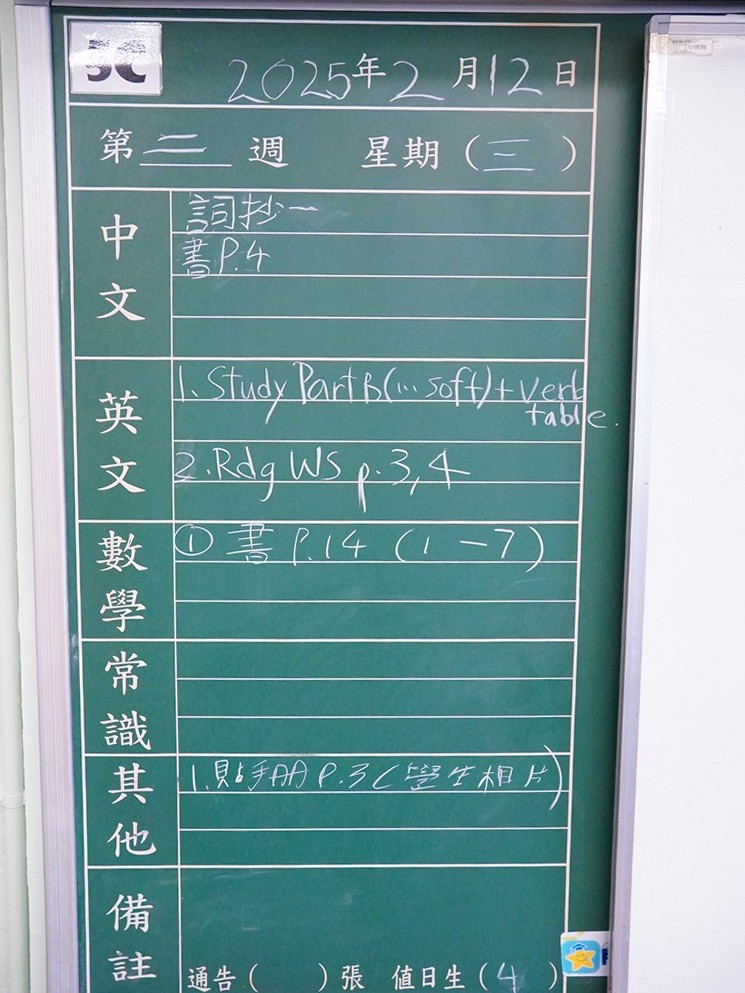 2025年2月12日
第二週 星期（三）
中文
詞抄一
書P.4
英文
1. Study Part B(... soft) + verb
table.
2. Rdg WS p.3,4
數學
① 書 P.14 (1-7)
常識
其他
1. 貼手冊 P.3 (學生相片)
備註
通告（ ）張 值日生（4）